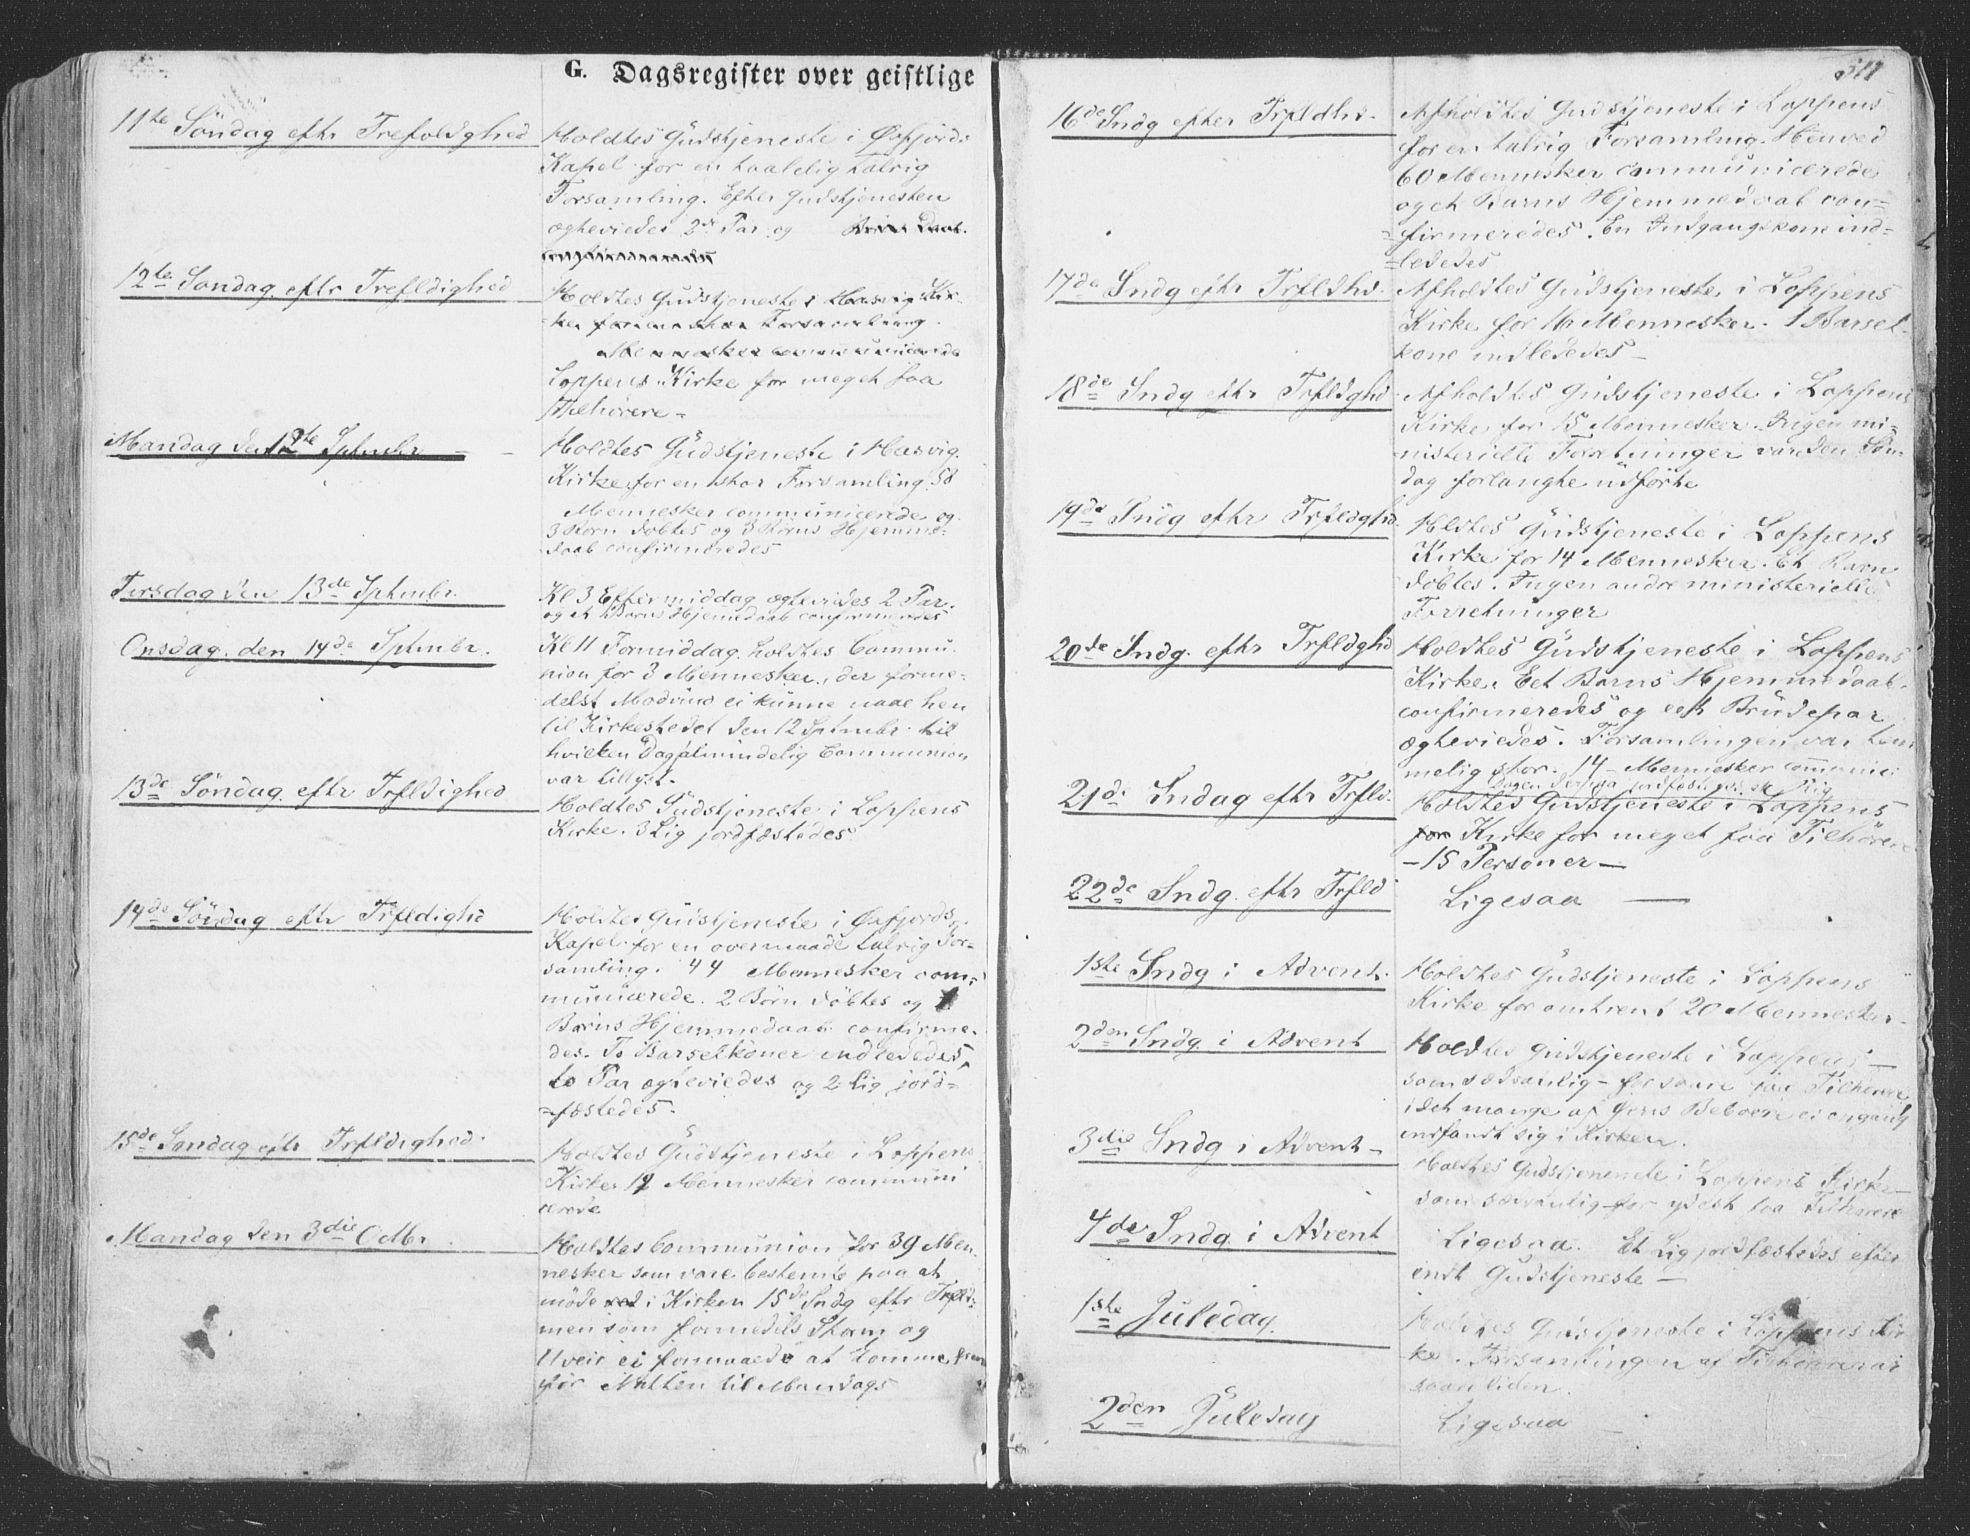 G. Dagsregister over geistlige
11te Söndag eftr Trefoldighed
Holdtes Gudstjeneste i Øxfjords
Kapel for en taalelig talrig
Forsamling. Efter Gudstjenesten
ægteviedes 2de Par og
12te Søndag eftr Trefldighed
Holdtes Gudstjeneste i Hasvig Kir-
ke for en stor Forsamling.
Mennesker communicerede
Loppens Kirke for meget faa
Tilhörere -
Mandag den 12te Sptmbr
Holdtes Gudstjeneste i Hasvig
Kirke for en stor Forsamling 58
Mennesker communicerede og
3 Börn döbtes og 3 Börns Hjemme-
daab confirmeredes
Tirsdag den 13de Sptmbr.
Kl 3 Eftermiddag ægteviedes 2 Par.
og et Barns Hjemedaab confirmeredes
Onsdag den 14de Sptmbr.
Kl 11 Formiddag holdtes Commu-
nion for 3 Mennesker, der forme-
delst Modvind ei kunne naae hen
til Kirkestedet den 12 Sptmbr. til
hvilken Dag almindelig Communion
var tillyst.
13de Söndag eftr Trfldighed
Holdtes Gudstjeneste i Loppens
Kirke. 3 Lig jordfæstedes
14de Söndag eftr Trfldighd
Holdtes Gudstjeneste i Øxfjords
Kapel for en overmaade talrig For-
samling. 44 Mennesker com-
municerede. 2 Börn döbtes og 1
Barns Hjemmedaab confirme-
des. To Barselkoner indlededes,
to Par ægteviedes og 2 Lig jord-
-fæstedes.
15de Søndag eftr Trfldighed.
Holdtes Gudstjeneste i Loppens
Kirke 19 Mennesker communi
cerede
Mandag den 3die Octbr.
Holdtes Communion for 39 Men
nesker som vare bestemte paa at
möde i Kirken 15de Sndg eftr Trfld.
men som formedelst Storm og
Uveir ei formaaede at komme frem
før Natten til Mandags
311
16de Sndg efter Trfldhd.
Afholdtes Gudstjeneste i Loppens
for en talrig Forsamling. Henved
60 Mennesker communicerede
og et Barns Hjemmedaab con-
=firmeredes. En Indgangskone ind-
=ledes
17de Sndg eftr Trfldhd.
Afholdtes Gudstjeneste i Loppens
Kirke for 16 Mennesker. 1 Barsel-
kone indlededes -
18de Sndg eftr Trfldighd
Afholdtes Gudstjeneste i Loppens
Kirke for 15 Mennesker. Ingen mi-
nisterielle Forretninger vare den Sön-
dag forlangte udförte
19de Sndg eftr Trfldghd.
Holdtes Gudstjeneste i Loppens
Kirke for 14 Mennesker. Et Barn
döbtes. Ingen andre ministerielle
Forretninger
20de Sndg. eftr Trfldghd
Holdtes Gudstjeneste i Loppens
Kirke. Eet Barns Hjemmedaab
confirmeredes og eet Brudepar
ægteviedes. Forsamlingen var tem
melig stor. 14 Mennesker communici
21de Sndag eftr Trfld.
Holdtes Gudstjeneste i Loppens
for Kirke for meget faa Tilhörere
- 15 Personer -
22de Sndg. eftr Trfld
Ligesaa -
1ste Sndg i Advent.
Holdtes Gudstjeneste i Loppens
Kirke for omtrent 20 Mennesker -
2den Sndg. i Advent
Holdtes Gudstjeneste i Loppens -
som sædvanlig - for saare faa Tilhörere
idet mange af Öens Beboere ei engang
indfandt sig i Kirken.
3die Sndg i Advent -
Holdtes Gudstjeneste i Loppens Kirke -
som sædvanlig for ydest faa Tilhörere
4de Sndg. i Advent
Ligesaa. Et Lig jordfæstedes efter
endt Gudstjeneste -
1ste Juledag.
Holdtes Gudstjeneste i Loppens Kir-
ke. Forsamlingen af Tilhörere var
saare liden.
2den Juledag
Ligesaa